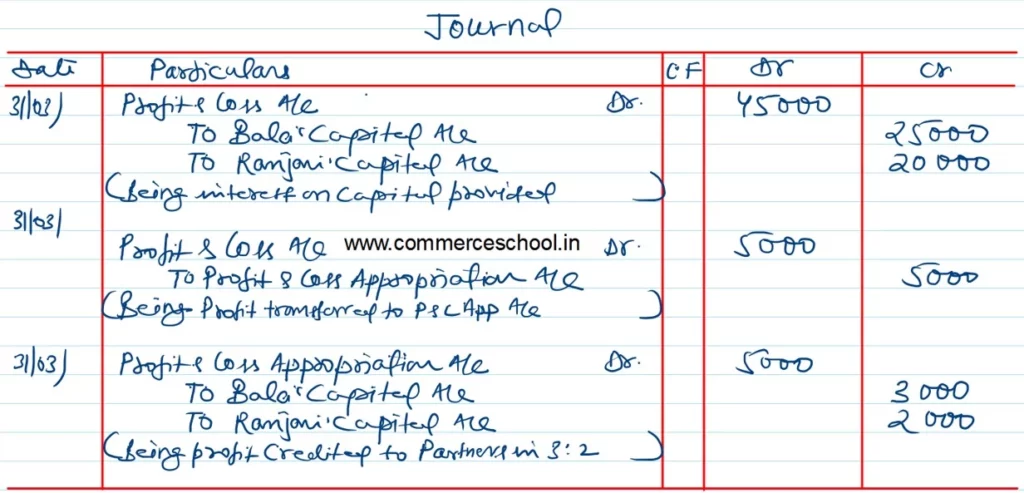 Journal
Date Particulars CF Dr Cr
31/03) Profit & Loss A/c Dr. 45000
To Bala's Capital A/c 25000
To Ranjani's Capital A/c 20 000
(Being interest on Capital provided)
31/03)
Profit & Loss A/c www.commerceschool.in Dr. 5000
To Profit & Loss Appropriation A/c 5000
(Being Profit transferred to P&L App A/c)
31/03) Profit & Loss Appropriation A/c Dr. 5000
To Bala's Capital A/c 3 000
To Ranjani's Capital A/c 2 000
(Being profit Credited to Partners in 3:2)